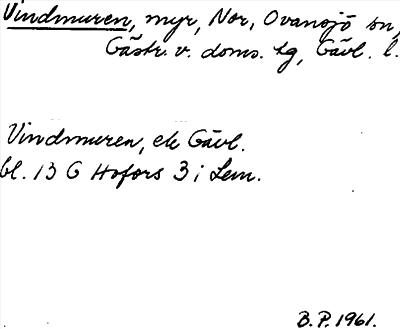 Vindmuren, myr, Nor, Ovansjö sn,
Gästr. v. doms. tg, Gävl. l.
Vindmuren, ek Gävl.
bl. 13 G Hofors 3 i Lem.
B.P. 1961.